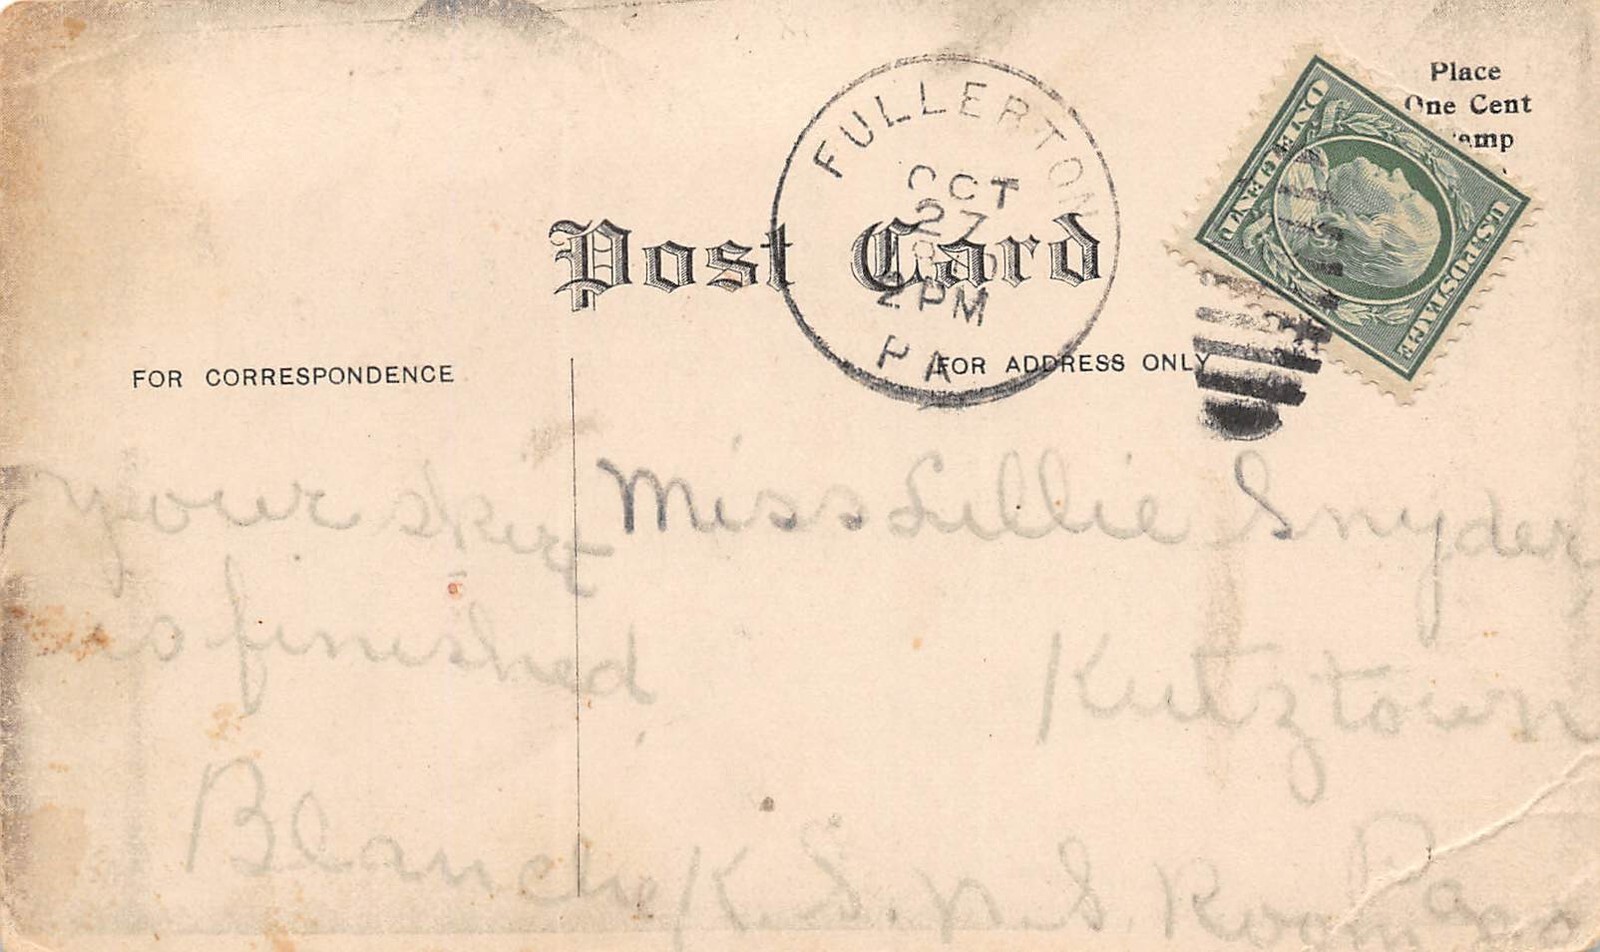 Place
One Cent
Stamp
FULLERTON
OCT
27
2 PM
PA
ONE CENT
U.S. POSTAGE
Post Card
FOR CORRESPONDENCE
FOR ADDRESS ONLY
your skirt
is finished
Blanche
Miss Lillie Snyder,
Kutztown
Pa
K. S. N. S. Room